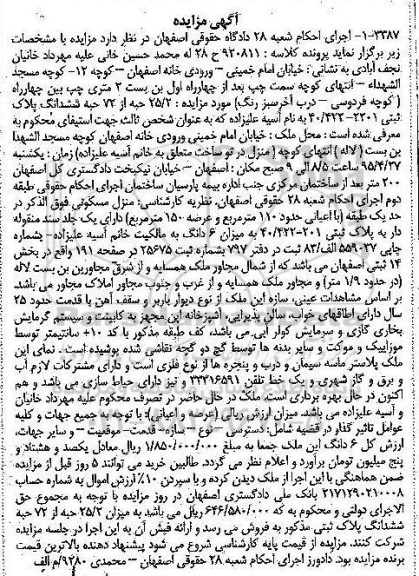 آگهی مزایده
۳۳۸۷-۱- اجرای احکام شعبه ۲۸ دادگاه حقوقی اصفهان در نظر دارد مزایده با مشخصات
زیر برگزار نماید پرونده کلاسه : ۹۲۰۸۱۱ ح ۲۸ له محمد حسین خانی علیه مهرداد خانیان
نجف آبادی به نشانی : خیابان امام خمینی – ورودی خانه اصفهان – کوچه ۱۲- کوچه مسجد
الشهداء – انتهای کوچه سمت چپ بعد از چهارراه اول بن بست ۲ متری چپ بین چهارراه
( کوچه فردوسی – درب آخرسبز رنگ) مورد مزایده : ۲۵/۲ حبه از ۷۲ حبه ششدانگ پلاک
ثبتی ۲۲۰۱–۴۰/۴۲۲ به نام آسیه علیزاده که به عنوان شخص ثالث جهت استیفای محکوم به
معرفی شده است : محل ملک : خیابان امام خمینی ورودی خانه اصفهان کوچه مسجد الشهدا
بن بست ( لاله ) انتهای کوچه (منزل در تو ساخت متعلق به خانم آسیه علیزاده) زمان : یکشنبه
۹۵/۴/۲۷ ساعت ۸/۵ الی ۹ صبح مکان : اصفهان – خیابان نیکبخت دادگستری کل اصفهان
۲۰۰ متر بعد از ساختمان مرکزی جنب اداره بیمه پارسیان ساختمان اجرای احکام حقوقی طبقه
دوم اجرای احکام شعبه ۲۸ حقوقی اصفهان. نظریه کارشناسی: منزل مسکونی فوق الذکر در
حد یک طبقه (با اعیانی حدود ۱۱۰ مترمربع و عرصه ۱۵۰ مترمربع) دارای یک جلد سند منقوله
دار به پلاک ثبتی ۲۰۱–۴۰/۴۲۲ به میزان ۶ دانگ به مالکیت خانم آسیه علیزاده – بشماره
چاپی ۵۵۹۰۲۷ الف/۸۳ ثبت در دفتر ۷۹۷ بشماره ثبت ۲۵۶۷۵ در صفحه ۱۹۱ واقع در بخش
۱۴ ثبتی اصفهان می باشد که از شمال مجاور ملک همسایه و از شرق مجاورین بن بست لاله
(در حدود ۱/۹ متر) و مجاور ملک همسایه و از غرب و جنوب مجاور املاک مجاور می باشد.
بر اساس مشاهدات عینی، سازه این ملک از نوع دیوار باربر و سقف آهن با قدمت حدود ۲۵
سال دارای اطاقهای خواب، سالن پذیرایی، آشپزخانه اپن مجهز به کابینت و سیستم گرمایش
بخاری گازی و سرمایش کولر آبی می باشد، کف طبقه مذکور با کد ۱۰+ سانتیمتر توسط
موزاییک و موکت و سایر بدنه ها توسط گچ دو گچه نقاشی شده پوشیده است. نمای این
ملک پلاستر ماسه سیمان و درب و پنجره ها از نوع فلزی است و دارای مشترکات لازم آب
و برق و گاز شهری و یک خط تلفن ۳۳۴۱۶۵۹۱ و نیز دارای حیاط سازی می باشد و هم
اکنون در حال بهره برداری است. ملک در حال حاضر در تصرف محکوم علیه مهرداد خانیان
و آسیه علیزاده می باشد. میزان ارزش ریالی (عرصه و اعیانی): با توجه به جمیع جهات و کلیه
عوامل تاثیر گذار در قضیه شامل: دسترسی – نوع – سازه– قدمت– موقعیت – و سایر جهات،
ارزش کل ۶ دانگ این ملک جمعا به مبلغ ۱/۸۵۰/۰۰۰/۰۰۰ ریال معادل یکصد و هشتاد و
پنج میلیون تومان برآورد و اعلام نظر می گردد. طالبین خرید می توانند ۵ روز قبل از مزایده
ضمن هماهنگی با این اجرا از ملک دیدن کرده و با سپردن ۱۰٪ ارزش اموال به شماره حساب
۲۱۷۱۲۹۰۲۱۰۰۰۸ بانک ملی دادگستری اصفهان در روز مزایده با توجه به مجموع حق
الاجرای دولتی و محکوم به که ۶۴۶/۵۸۰/۰۰۰ ریال می باشد به میزان ۲۵/۲ حبه از ۷۲ حبه
ششدانگ پلاک ثبتی مذکور به فروش می رسد و ارائه فیش آن به این اجرا در جلسه مزایده
شرکت کنند. مزایده از قیمت پایه کارشناسی شروع می شود پیشنهاد دهنده بالاترین قیمت
برنده مزایده بود. دادورز اجرای احکام شعبه ۲۸ حقوقی اصفهان – محمدی ۹۲۸۰/م الف